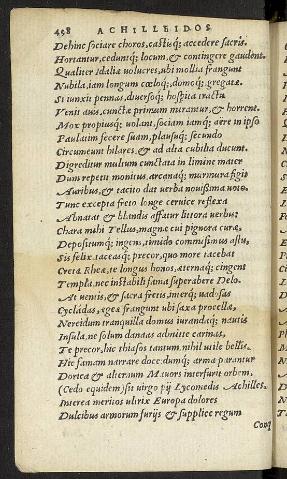 498 ACHILLEIDOS
Dehinc sociare choros, castisq; accedere sacris.
Hortantur, ceduntq; locum, & contingere gaudent.
Qualiter Idaliæ volucres, ubi mollia frangunt
Nubila, iam longum cœloq;, domoq; gregatæ
Si iunxit pennas, diuersoq; hospita tractu
Venit auis, cunctæ primum mirantur, & horrent.
Mox propiusq; volant, sociam tamq; aëre in ipso
Paulatim fecere suam, plausuq; secundo
Circumeunt hilares, & ad alta cubilia ducunt.
Digreditur multum cunctata in limine mater
Dum repetit monitus, arcanaq; murmura figit
Auribus, & tacito dat verba nouissima voto.
Tunc excepta freto longe ceruice reflexa
Abnatat & blandis affatur littora verbis:
Chara mihi Tellus, magnæ cui pignora curæ,
Depositumq; ingens, timido commisimus astu,
Sis felix, taceasq; precor, quo more tacebat
Creta Rheæ, te longus honos, æternaq; cingent
Templa, nec instabili fama superabere Delo.
At uentis, & sacra fretis, interq; uadosas
Cycladas, egeæ frangunt ubi saxa procellæ,
Nereidum tranquilla domus iurandaq; nautis
Insula, ne solum danaas admitte carinas,
Te precor, hic thiasos tantum, nihil utile bellis.
Hic famam narrare doce: dumq; arma parantur
Dorica & alternum Mauors interfurit orbem,
(Cedo equidem) sit uirgo pij Lycomedis Achilles.
Interea meritos ultrix Europa dolores
Dulcibus armorum furijs & supplice regum